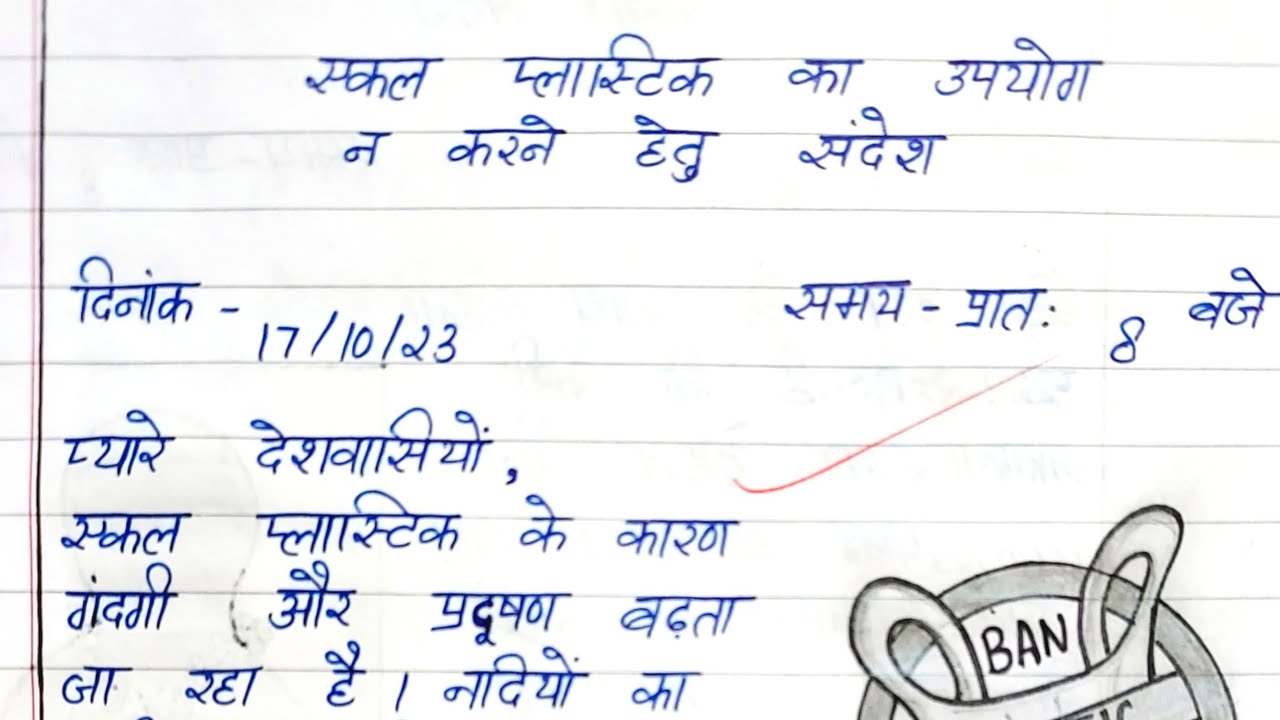 एकल प्लास्टिक का उपयोग
न करने हेतु संदेश
दिनांक - 17/10/23 समय - प्रातः 8 बजे
प्यारे देशवासियों,
एकल प्लास्टिक के कारण
गंदगी और प्रदूषण बढ़ता
जा रहा है। नदियों का
BAN